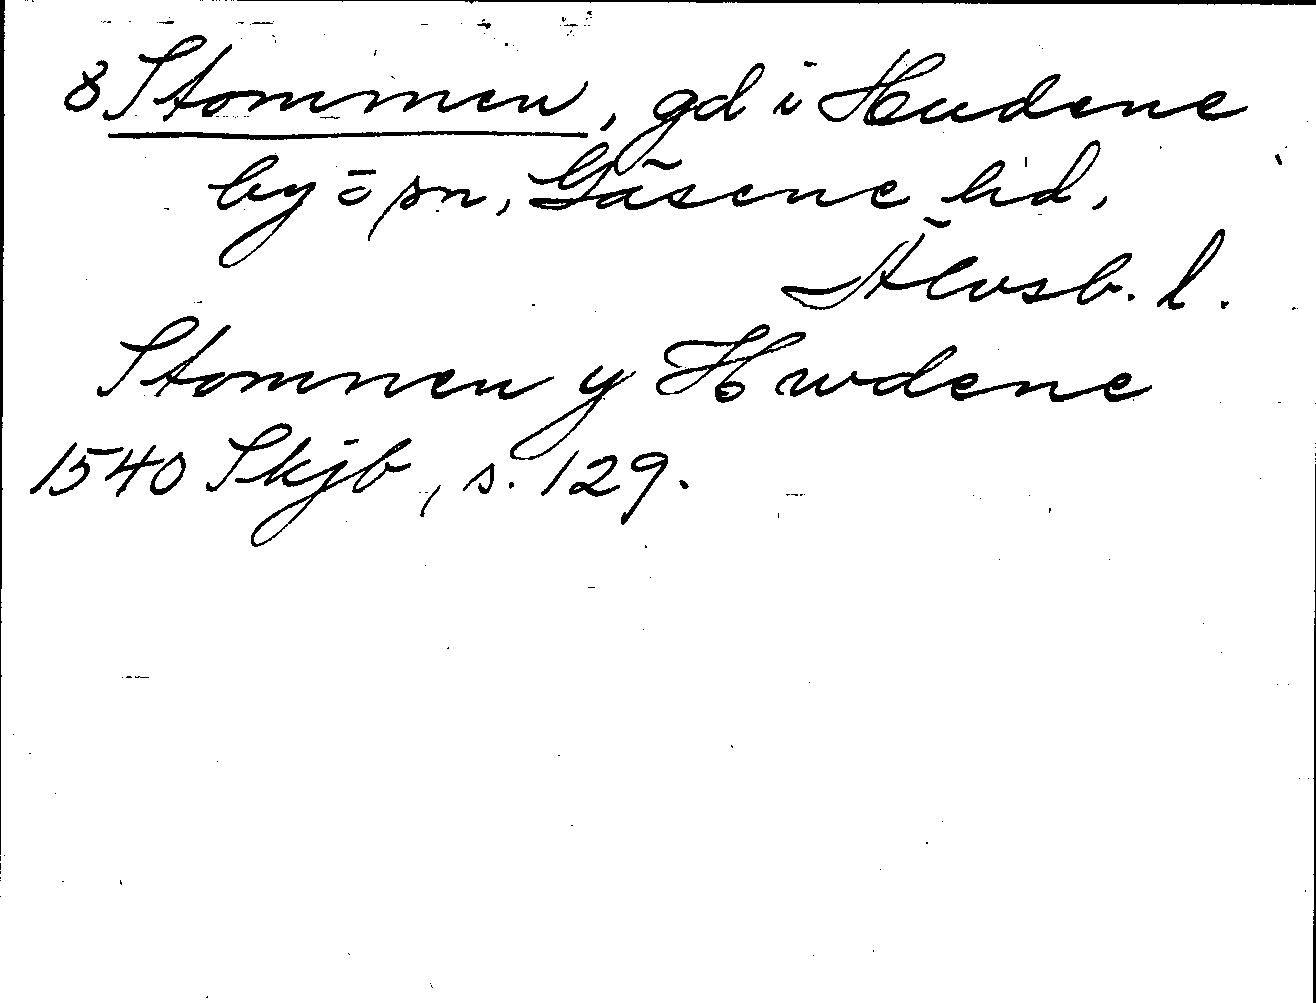 8 Stommen, gd i Hudene
by o sn, Gäsene hd,
Älvsb. l.
Stommen y Hwdene
1540 Skjb, s. 129.